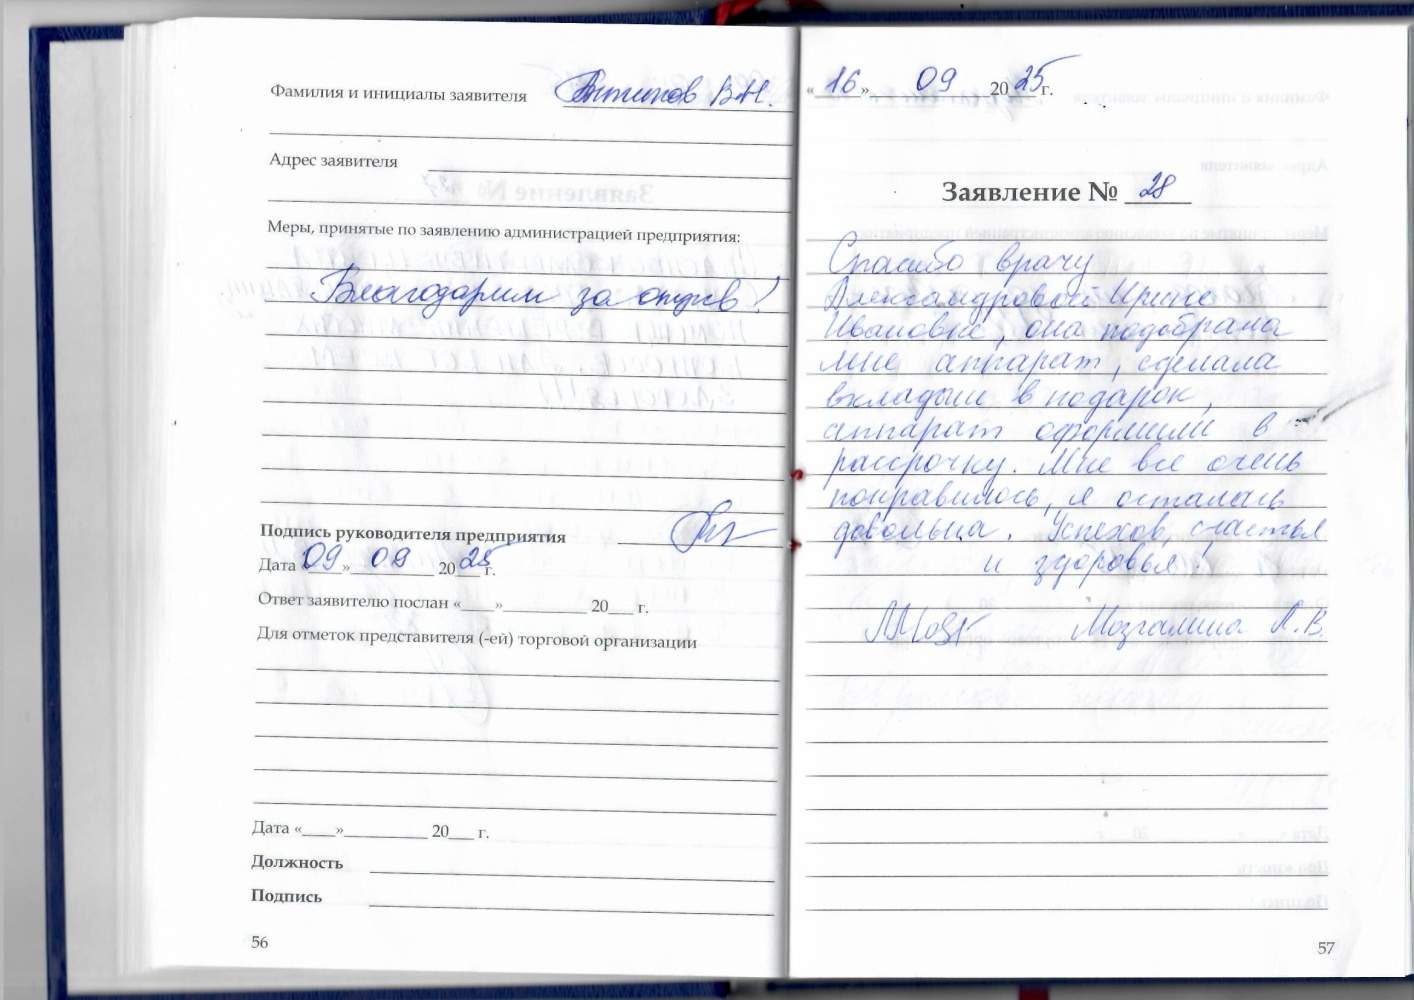 Фамилия и инициалы заявителя Антипов В.Н.
Адрес заявителя
Меры, принятые по заявлению администрацией предприятия:
Благодарим за отзыв!
Подпись руководителя предприятия
Дата «09» 09 2025 г.
Ответ заявителю послан «____»__________ 20___ г.
Для отметок представителя (-ей) торговой организации
Дата «____»__________ 20___ г.
Должность
Подпись
56
«16» 09 2025 г.
Заявление № 28
Спасибо врачу
Александровой Ирине
Ивановне, она подобрала
мне аппарат, сделала
вкладыш в подарок,
аппарат оформили в
рассрочку. Мне все очень
понравилось, я осталась
довольна. Успехов, счастья
и здоровья!
Мозгалина Л.В.
57